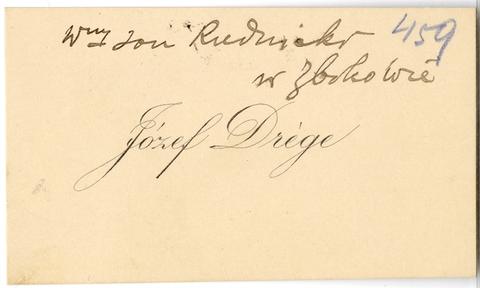 Wny Jan Rudnicki 459
w Zborowie
Józef Drège